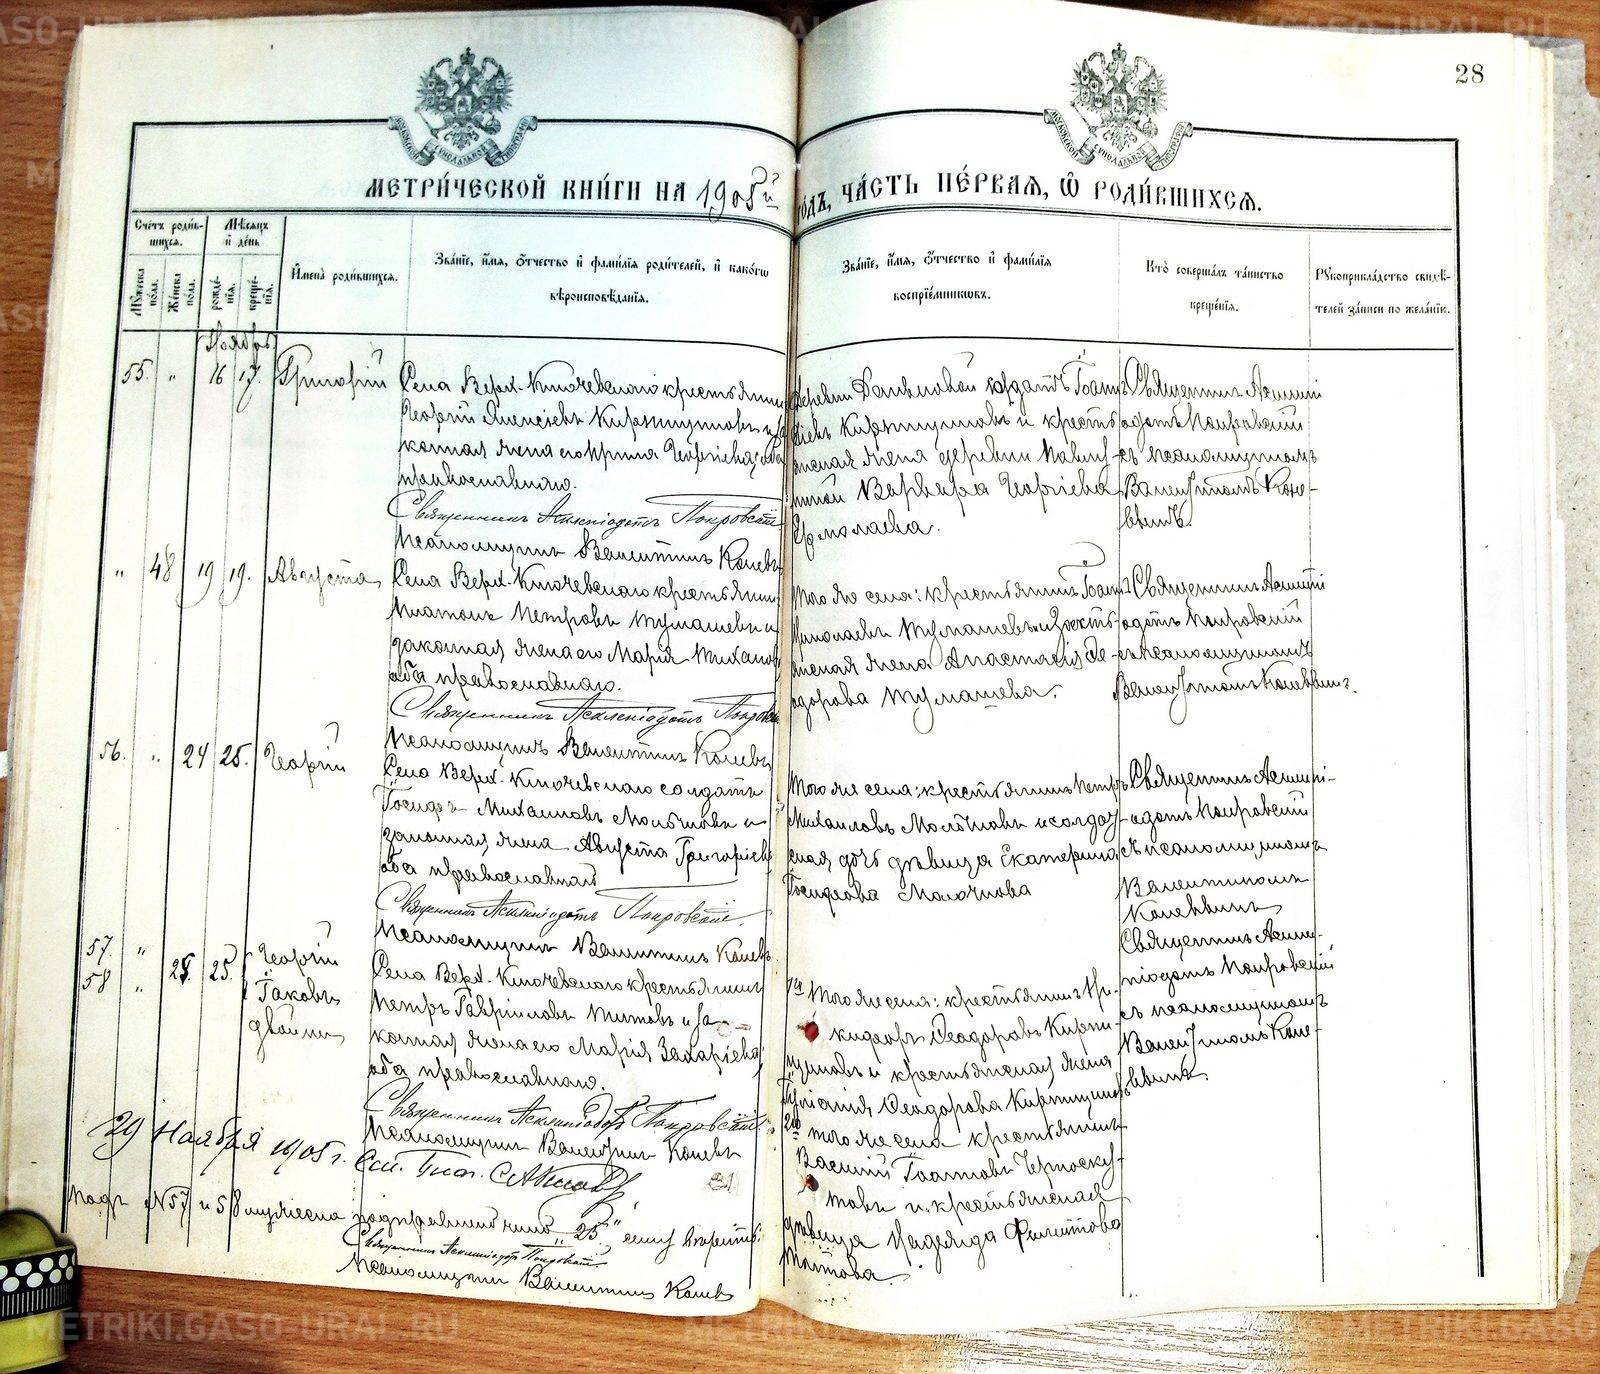 METRIKI.GASO-URAL.RU
28
МОСКОВСКОЙ СѴНОДАЛЬНОЙ ТИПОГРАФІИ
МОСКОВСКОЙ СѴНОДАЛЬНОЙ ТИПОГРАФІИ
МЕТРИ́ЧЕСКОЙ КНИ́ГИ НА 1905й
ГОДЪ, ЧА́СТЬ ПЕ́РВАЯ, Ѽ РОДИ́ВШИХСЯ.
Счетъ роди́вшихся.
Мѣсяцъ и҆ де́нь
Мꙋжеска пола.
Же́нска пола.
рожде́нія.
креще́нія.
И҆мена̀ роди́вшихся.
Зва́ніе, и҆́мя, ѻ҆́тчество и҆ фами́лія роди́телей, и҆ како́гѡ
вѣроисповѣ́данія.
Зва́ніе, и҆́мя, ѻ҆́тчество и҆ фами́лія
воспріе́мниковъ.
Кто̀ соверша́лъ та́инство
креще́нія.
Рꙋкоприкла́дство свидѣ́-
телей за́писи по жела́нію.
Ноябрь
55. " 16 17. Григорій
Села Верх-Ключевскаго крестьянинъ
Георгій Алексіевъ Кирпищиковъ и за
конная жена его Ирина Георгіева, оба
православнаго.
Священникъ Асклипіодотъ Покровскій
Псаломщикъ Валентинъ Коневъ
Деревни солдатъ Іоаннъ
Кирпищиковъ и кресть
янская жена деревни
Варвара Георгіева
Ермолаева.
Священникъ Асклипі
одотъ Покровскій
съ псаломщикомъ
Валентиномъ Коне-
вымъ.
" 48 19 19. Августа
Села Верх-Ключевскаго крестьянинъ
Платонъ Петровъ Тумашевъ и
законная жена его Марія
оба православнаго.
Священникъ Асклипіодотъ Покровскій
Псаломщикъ Валентинъ Коневъ
Того же села: крестьянинъ Іоаннъ
Николаевъ Тумашевъ и кресть
янская жена Анастасія Ѳе-
одорова Тумашева.
Священникъ Асклипі
одотъ Покровскій
съ псаломщикомъ
Валентиномъ Коневымъ.
56. " 24 25. Георгій
Села Верх-Ключевскаго солдатъ
Михаиловъ Молочковъ и
законная жена Августа Григоріева
оба православнаго
Священникъ Асклипіодотъ Покровскій.
Псаломщикъ Валентинъ Коневъ
Того же села: крестьянинъ Петръ
Михаиловъ Молочковъ и солдат
ская дочь дѣвица Екатерина
Молочкова
Священникъ Асклипі-
одотъ Покровскій
съ псаломщикомъ
Валентиномъ
Коневымъ
57. " 25. 25. Георгій
58 " Іаковъ
двойни
Села Верх-Ключевскаго крестьянинъ
Петръ Гавріиловъ Титовъ и за-
конная жена его Марія Захаріева,
оба православнаго.
Священникъ Асклипіодотъ Покровскій
Псаломщикъ Валентинъ Коневъ
1го Того же села: крестьянинъ Ни-
кифоръ Ѳеодоровъ Кирпи-
щиковъ и крестьянская жена
Ѳеодорова Кирпищикова
2го того же села крестьянинъ
Василій Іоанновъ Черноску-
товъ и крестьянская
дѣвица Надежда Филиппова
Титова.
Священникъ Аскли-
піодотъ Покровскій
съ псаломщикомъ
Валентиномъ Коне-
вымъ.
29 Ноября 1905 г.
Подъ №57 и 58 подправленной "25" сему вѣрить:
Священникъ Асклипіодотъ Покровскій
Псаломщикъ Валентинъ Коневъ
METRIKI.GASO-URAL.RU
METRIKI.GASO-URAL.RU